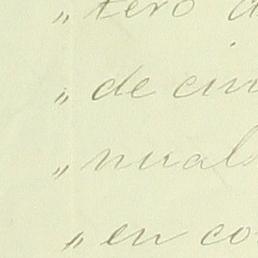 „ tero
„ de cin
„ nural
„ en co